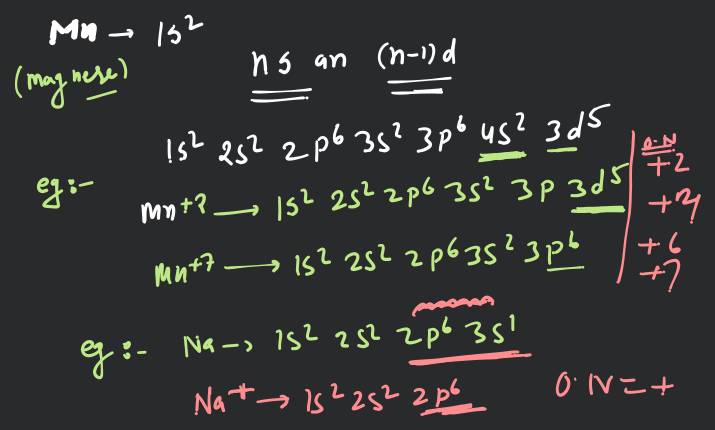 Mn → 1s²
(magnese)
ns an (n-1)d
1s² 2s² 2p⁶ 3s² 3p⁶ 4s² 3d⁵
O.N
+2
eg:-
Mn⁺² → 1s² 2s² 2p⁶ 3s² 3p 3d⁵
+6
+7
Mn⁺⁷ → 1s² 2s² 2p⁶ 3s² 3p⁶
eg:- Na → 1s² 2s² 2p⁶ 3s¹
Na⁺ → 1s² 2s² 2p⁶
O·N = +